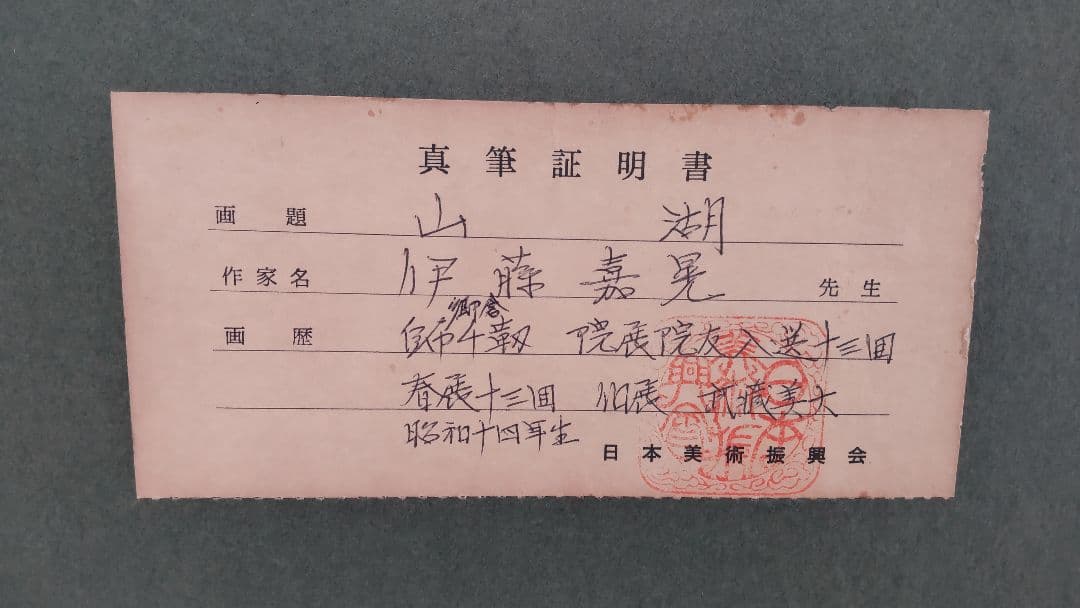 真筆証明書
画題 山湖
作家名 伊藤嘉晃 先生
画歴 師郷倉千靱 院展院友入選十三回
春展十三回 武蔵美大
昭和十四年生
日本美術振興会